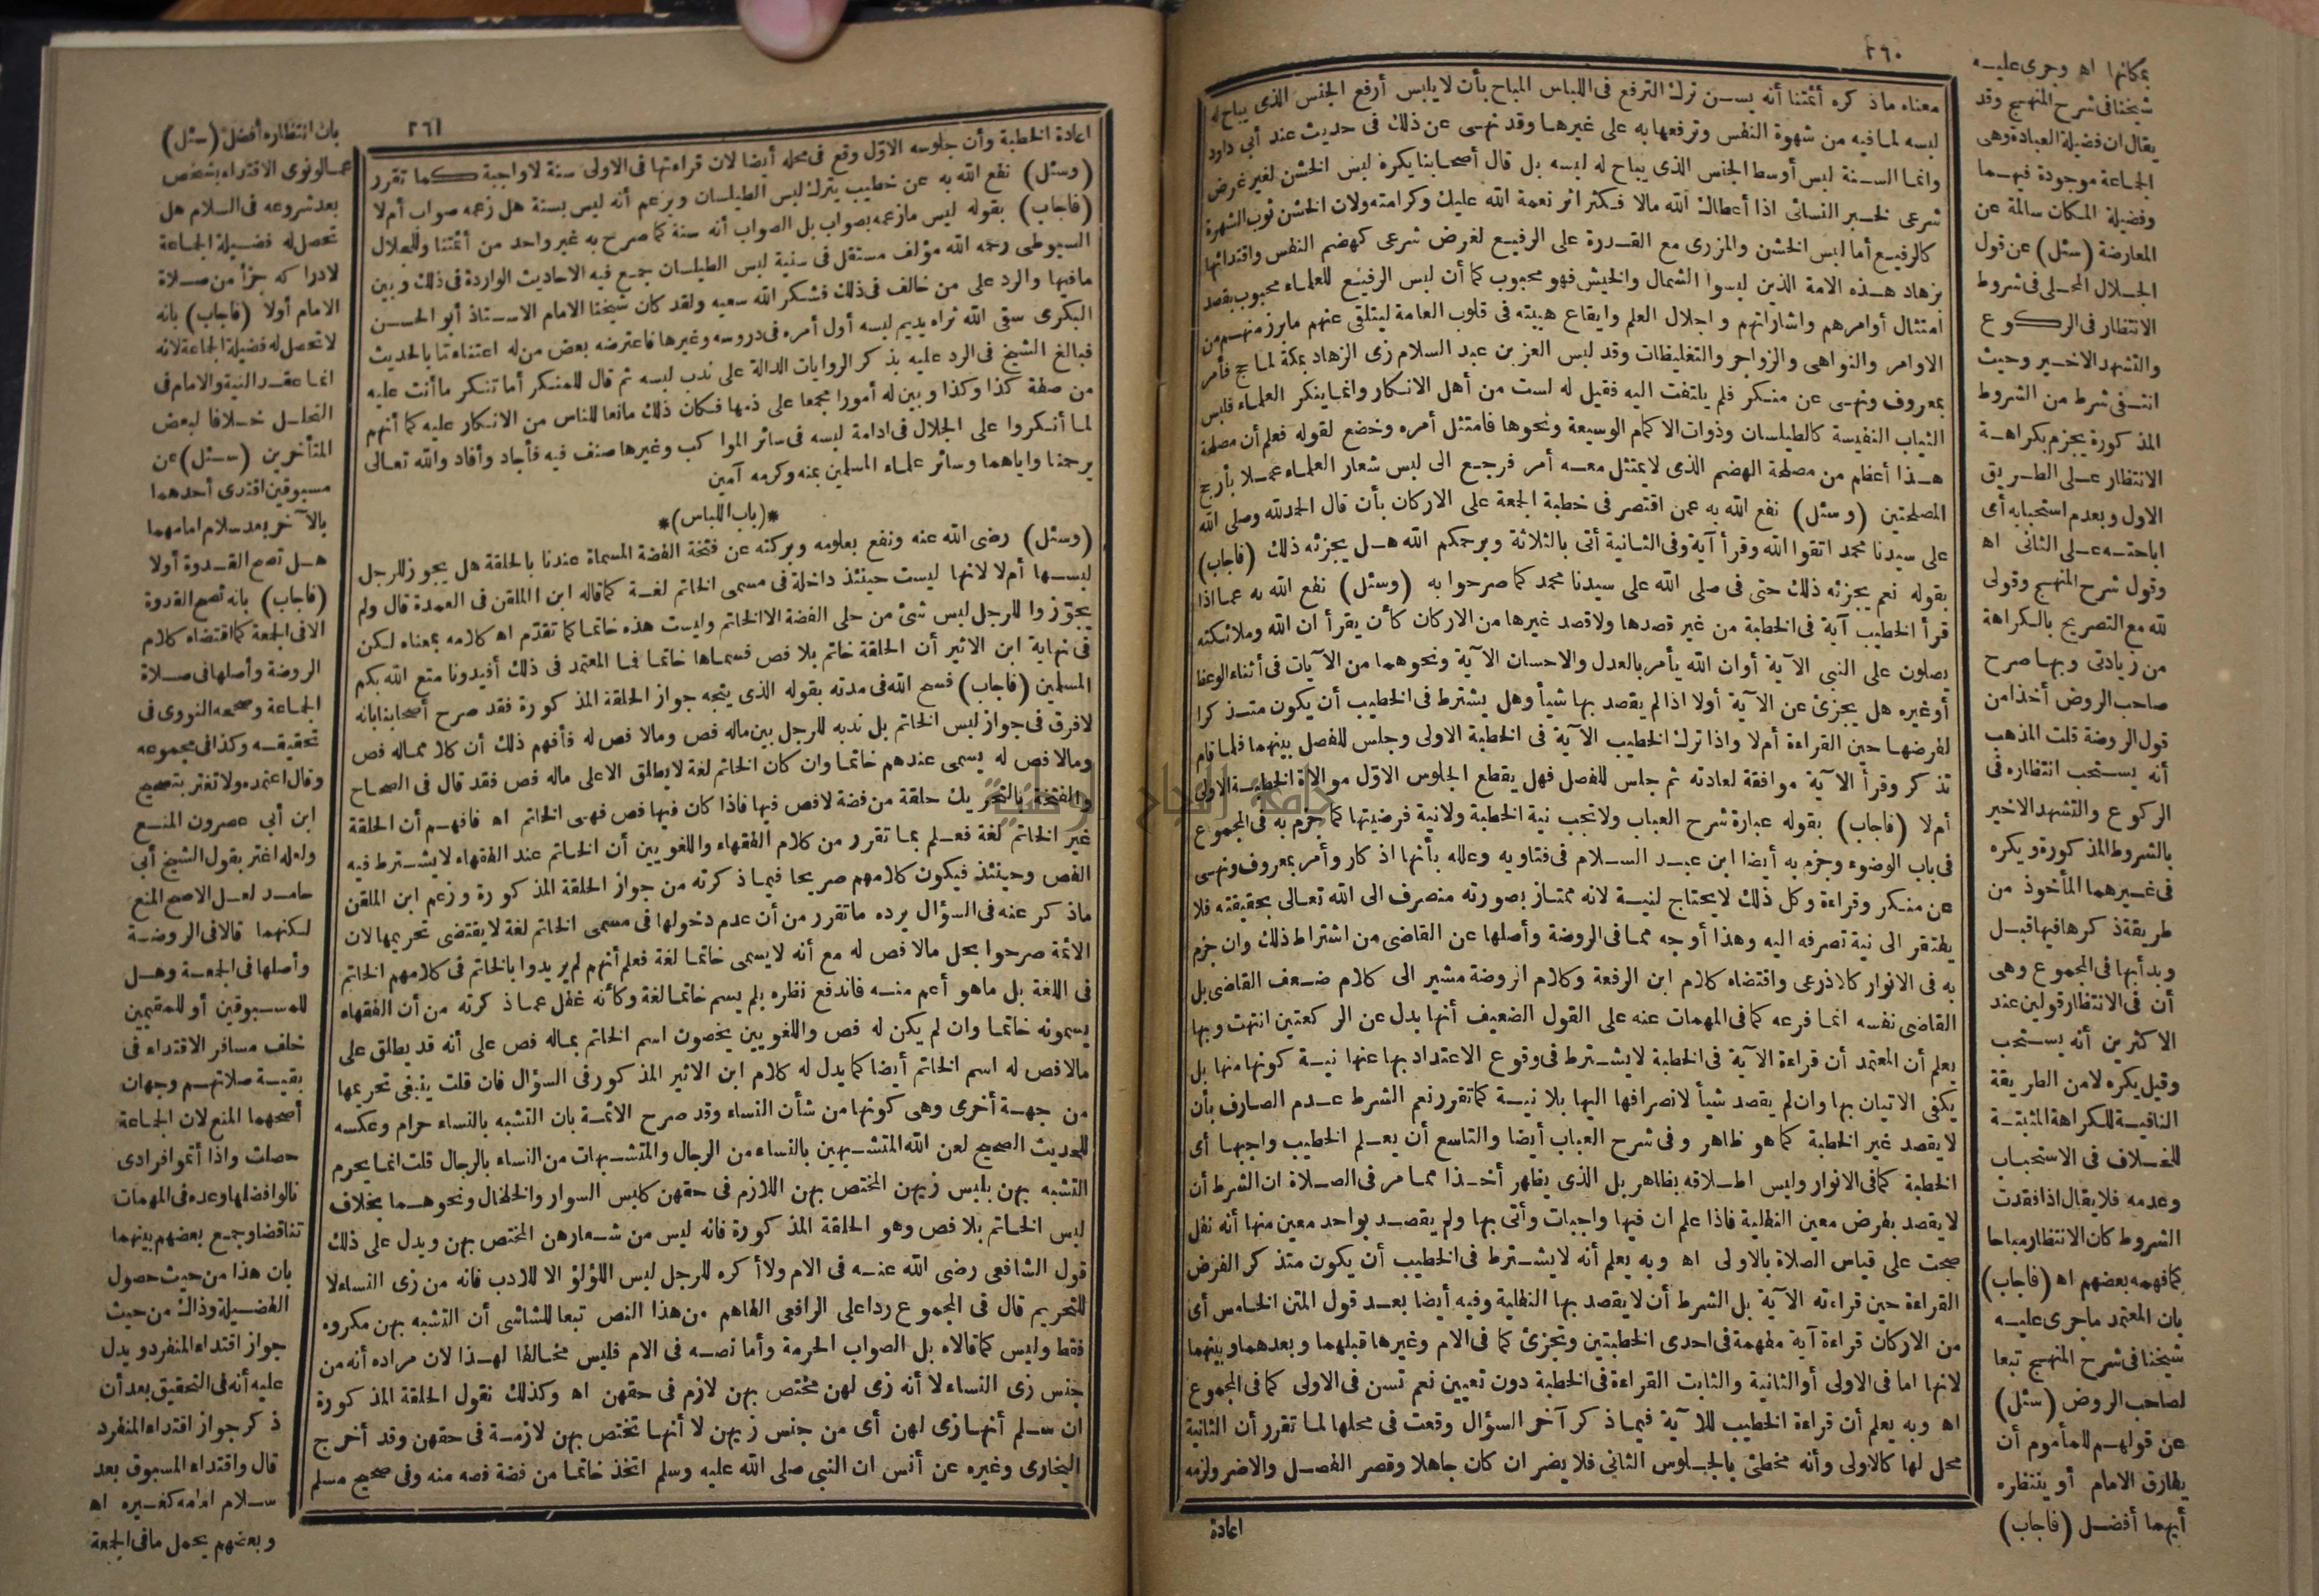 ٢٦٠
معناه ماذكره أئمتنا أنه يسن ترك الترفع فى اللباس المباح بأن لا يلبس أرفع الجنس الذى يباح له
لبسه لما فيه من شهوة النفس وترفعها به على غيرها وقد نهى عن ذلك فى حديث عند أبى داود
وانما السنة لبس أوسط الجنس الذى يباح له لبسه بل قال أصحابنا يكره لبس الخشن لغير غرض
شرعى لخبر النسائى اذا أعطاك الله مالا فكثر اثر نعمة الله عليك وكرامته ولان الخشن ثوب الشهرة
كالرفيع أما لبس الخشن والمزرى مع القدرة على الرفيع لغرض شرعى كهضم النفس واقتدائها
بزهاد هذه الامة الذين لبسوا الشمال والخيش فهو محبوب كما أن لبس الرفيع للعلماء محبوب بقصد
امتثال أوامرهم واشاراتهم واجلال العلم وايقاع هيبته فى قلوب العامة ليتلقى عنهم مابرز منهم من
الاوامر والنواهى والزواجر والتغليظات وقد لبس العز بن عبد السلام زى الزهاد بمكة لما حج فأمر
بمعروف ونهى عن منكر فلم يلتفت اليه فقيل له لست من أهل الانكار وانما ينكر العلماء فلبس
الثياب النفيسة كالطيلسان وذوات الاكمام الوسيعة ونحوها فامتثل أمره وخضع لقوله فعلم أن مصلحة
هذا أعظم من مصلحة الهضم الذى لا يمتثل معه أمر فرجع الى لبس شعار العلماء عملا بأرجح
المصلحتين (وسئل) نفع الله به عمن اقتصر فى خطبة الجمعة على الاركان بأن قال الحمد لله وصلى الله
على سيدنا محمد اتقوا الله وقرأ آية وفى الثانية أتى بالثلاثة ويرحمكم الله هل يجزئه ذلك (فاجاب)
بقوله نعم يجزئه ذلك حتى فى صلى الله على سيدنا محمد كما صرحوا به (وسئل) نفع الله به عما اذا
قرأ الخطيب آية فى الخطبة من غير قصدها ولا قصد غيرها من الاركان كأن يقرأ ان الله وملائكته
يصلون على النبى الآية أوان الله يأمر بالعدل والاحسان الآية ونحوهما من الآيات فى أثناء الوعظ
أوغيره هل يجزئ عن الآية أولا اذا لم يقصد بها شيأ وهل يشترط فى الخطيب أن يكون متذكرا
لفرضها حين القراءة أم لا واذا ترك الخطيب الآية فى الخطبة الاولى وجلس للفصل بينهما فلما قام
تذكر وقرأ الآية موافقة لعادته ثم جلس للفصل فهل يقطع الجلوس الاول موالاة الخطبة الاولى
أم لا (فاجاب) بقوله عبارة شرح العباب ولا تجب نية الخطبة ولا نية فرضيتها كما جزم به فى المجموع
فى باب الوضوء وجزم به أيضا ابن عبد السلام فى فتاويه وعلله بأنها اذكار وأمر بمعروف ونهى
عن منكر وقراءة وكل ذلك لا يحتاج لنية لانه ممتاز بصورته منصرف الى الله تعالى بحقيقته فلا
يفتقر الى نية تصرفه اليه وهذا أوجه مما فى الروضة وأصلها عن القاضى من اشتراط ذلك وان جزم
به فى الانوار كالاذرعى واقتضاه كلام ابن الرفعة وكلام الروضة مشير الى كلام ضعف القاضى بل
القاضى نفسه انما فرعه كما فى المهمات عنه على القول الضعيف أنها بدل عن الركعتين انتهت وبها
يعلم أن المعتمد أن قراءة الآية فى الخطبة لا يشترط فى وقوع الاعتداد بها عنها نية كونها منها بل
يكفى الاتيان بها وان لم يقصد شيأ لانصرافها اليها بلا نية كما تقرر نعم الشرط عدم الصارف بأن
لا يقصد غير الخطبة كما هو ظاهر وفى شرح العباب أيضا والتاسع أن يعلم الخطيب واجبها أى
الخطبة كما فى الانوار وليس اطلاقه بظاهر بل الذى يظهر أخذا مما مر فى الصلاة ان الشرط أن
لا يقصد بفرض معين النفلية فاذا علم ان فيها واجبات وأتى بها ولم يقصد بواحد معين منها أنه نفل
صحت على قياس الصلاة بالاولى اه وبه يعلم أنه لا يشترط فى الخطيب أن يكون متذكر الفرض
القراءة حين قراءته الآية بل الشرط أن لا يقصد بها النفلية وفيه أيضا بعد قول المتن الخامس أى
من الاركان قراءة آية مفهمة فى احدى الخطبتين وتجزئ كما فى الام وغيرها قبلهما وبعدهما وبينهما
لانها اما فى الاولى أو الثانية والثابت القراءة فى الخطبة دون تعيين نعم تسن فى الاولى كما فى المجموع
اه وبه يعلم أن قراءة الخطيب للآية فيما ذكر آخر السؤال وقعت فى محلها لما تقرر أن الثانية
محل لها كالاولى وأنه مخطئ بالجلوس الثانى فلا يضر ان كان جاهلا وقصر الفصل والا ضر ولزمه
اعادة
بمكانها اه وجرى عليه
شيخنا فى شرح المنهج وقد
يقال ان فضيلة العبادة وهى
الجماعة موجودة فيهما
وفضيلة المكان سالمة عن
المعارضة (سئل) عن قول
الجلال المحلى فى شروط
الانتظار فى الركوع
والتشهد الاخير وحيث
انتفى شرط من الشروط
المذكورة يجزم بكراهة
الانتظار على الطريق
الاول وبعدم استحبابه أى
اباحته على الثانى اه
وقول شرح المنهج وقولى
لله مع التصريح بالكراهة
من زيادتى وبها صرح
صاحب الروض أخذا من
قول الروضة قلت المذهب
أنه يستحب انتظاره فى
الركوع والتشهد الاخير
بالشروط المذكورة ويكره
فى غيرهما المأخوذ من
طريقة ذكرها فيها قبل
وبدأ بها فى المجموع وهى
أن فى الانتظار قولين عند
الاكثرين أنه يستحب
وقيل يكره لا من الطريقة
النافية للكراهة المثبتة
للخلاف فى الاستحباب
وعدمه فلا يقال اذا فقدت
الشروط كان الانتظار مباحا
كما فهمه بعضهم اه (فاجاب)
بان المعتمد ما جرى عليه
شيخنا فى شرح المنهج تبعا
لصاحب الروض (سئل)
عن قولهم للمأموم أن
يفارق الامام أو ينتظره
أيهما أفضل (فاجاب)
٢٦١
اعادة الخطبة وأن جلوسه الاول وقع فى محله أيضا لان قراءتها فى الاولى سنة لا واجبة كما تقرر
(وسئل) نفع الله به عن خطيب يترك لبس الطيلسان ويزعم أنه ليس بسنة هل زعمه صواب أم لا
(فاجاب) بقوله ليس ما زعمه بصواب بل الصواب أنه سنة كما صرح به غير واحد من أئمتنا وللجلال
السيوطى رحمه الله مؤلف مستقل فى سنية لبس الطيلسان جمع فيه الاحاديث الواردة فى ذلك وبين
مافيها والرد على من خالف فى ذلك فشكر الله سعيه ولقد كان شيخنا الامام الاستاذ أبو الحسن
البكرى سقى الله ثراه يديم لبسه أول أمره فى دروسه وغيرها فاعترضه بعض من له اعتناء تا بالحديث
فبالغ الشيخ فى الرد عليه بذكر الروايات الدالة على ندب لبسه ثم قال للمنكر أما تنكر ما أنت عليه
من صفة كذا وكذا وبين له أمورا مجمعا على ذمها فكان ذلك مانعا للناس من الانكار عليه كما أنهم
لما أنكروا على الجلال فى ادامة لبسه فى سائر المواكب وغيرها صنف فيه فأجاد وأفاد والله تعالى
يرحمنا واياهما وسائر علماء المسلمين بمنه وكرمه آمين
*(باب اللباس)*
(وسئل) رضى الله عنه ونفع بعلومه وبركته عن فتخة الفضة المسماة عندنا بالحلقة هل يجوز للرجل
لبسها أم لا لانها ليست حينئذ داخلة فى مسمى الخاتم لغة كما قاله ابن الملقن فى العمدة قال ولم
يجوزوا للرجل لبس شئ من حلى الفضة الا الخاتم وليست هذه خاتما كما تقدم اه كلامه بمعناه لكن
فى نهاية ابن الاثير أن الحلقة خاتم بلا فص فسماها خاتما فما المعتمد فى ذلك أفيدونا متع الله بكم
المسلمين (فاجاب) فسح الله فى مدته بقوله الذى يتجه جواز الحلقة المذكورة فقد صرح أصحابنا بانه
لا فرق فى جواز لبس الخاتم بل ندبه للرجل بين ماله فص ومالا فص له فأفهم ذلك أن كلا مماله فص
ومالا فص له يسمى عندهم خاتما وان كان الخاتم لغة لا يطلق الا على ماله فص فقد قال فى الصحاح
والفتخة بالتحريك حلقة من فضة لا فص فيها فاذا كان فيها فص فهى الخاتم اه فافهم أن الحلقة
غير الخاتم لغة فعلم بما تقرر من كلام الفقهاء واللغويين أن الخاتم عند الفقهاء لا يشترط فيه
الفص وحينئذ فيكون كلامهم صريحا فيما ذكرته من جواز الحلقة المذكورة وزعم ابن الملقن
ماذكر عنه فى السؤال يرده ما تقرر من أن عدم دخولها فى مسمى الخاتم لغة لا يقتضى تحريمها لان
الائمة صرحوا بحل مالا فص له مع أنه لا يسمى خاتما لغة فعلم أنهم لم يريدوا بالخاتم فى كلامهم الخاتم
فى اللغة بل ماهو أعم منه فاندفع نظره بلم يسم خاتما لغة وكأنه غفل عما ذكرته من أن الفقهاء
يسمونه خاتما وان لم يكن له فص واللغويين يخصون اسم الخاتم بماله فص على أنه قد يطلق على
مالا فص له اسم الخاتم أيضا كما يدل له كلام ابن الاثير المذكور فى السؤال فان قلت ينبغى تحريمها
من جهة أخرى وهى كونها من شأن النساء وقد صرح الائمة بان التشبه بالنساء حرام وعكسه
للحديث الصحيح لعن الله المتشبهين بالنساء من الرجال والمتشبهات من النساء بالرجال قلت انما يحرم
التشبه بهن بلبس زيهن المختص بهن اللازم فى حقهن كلبس السوار والخلخال ونحوهما بخلاف
لبس الخاتم بلا فص وهو الحلقة المذكورة فانه ليس من شعارهن المختص بهن ويدل على ذلك
قول الشافعى رضى الله عنه فى الام ولا أكره للرجل لبس اللؤلؤ الا للادب فانه من زى النساء لا
للتحريم قال فى المجموع ردا على الرافعى الفاهم من هذا النص تبعا للشاشى أن التشبه بهن مكروه
فقط وليس كما قالاه بل الصواب الحرمة وأما نصه فى الام فليس مخالفا لهذا لان مراده أنه من
جنس زى النساء لا أنه زى لهن مختص بهن لازم فى حقهن اه وكذلك نقول الحلقة المذكورة
ان سلم أنها زى لهن أى من جنس زيهن لا أنها تختص بهن لازمة فى حقهن وقد أخرج
البخارى وغيره عن أنس ان النبى صلى الله عليه وسلم اتخذ خاتما من فضة فصه منه وفى صحيح مسلم
بان انتظاره أفضل (سئل)
عمالو نوى الاقتداء بشخص
بعد شروعه فى السلام هل
تحصل له فضيلة الجماعة
لادراكه جزأ من صلاة
الامام أولا (فاجاب) بانه
لا تحصل له فضيلة الجماعة لانه
انما عقد النية والامام فى
التحلل خلافا لبعض
المتأخرين (سئل) عن
مسبوقين اقتدى أحدهما
بالآخر بعد سلام امامهما
هل تصح القدوة أولا
(فاجاب) بانه تصح القدوة
الا فى الجمعة كما اقتضاه كلام
الروضة وأصلها فى صلاة
الجماعة وصححه النووى فى
تحقيقه وكذا فى مجموعه
وقال اعتمده ولا تغتر بتصحيح
ابن أبى عصرون المنع
ولعله اغتر بقول الشيخ أبى
حامد لعل الاصح المنع
لكنهما قالا فى الروضة
وأصلها فى الجمعة وهل
للمسبوقين أو للمقيمين
خلف مسافر الاقتداء فى
بقية صلاتهم وجهان
أصحهما المنع لان الجماعة
حصلت واذا أتموا فرادى
نالوا فضلها وعده فى المهمات
تناقضا وجمع بعضهم بينهما
بان هذا من حيث حصول
الفضيلة وذاك من حيث
جواز اقتداء المنفرد ويدل
عليه أنه فى التحقيق بعد أن
ذكر جواز اقتداء المنفرد
قال واقتداء المسبوق بعد
سلام امامه كغيره اه
وبعضهم يحمل ما فى الجمعة